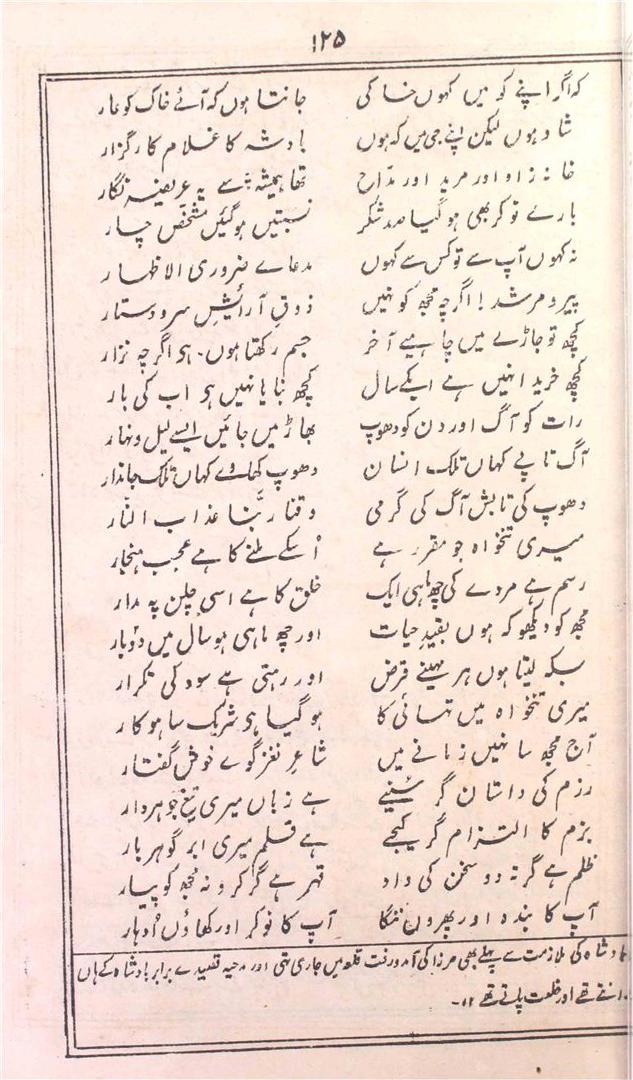 ۱۲۵
کہ اگر اپنے کو میں کہوں خاکی جانتا ہوں کہ آئے خاک کو عار
شاد ہوں لیکن اپنے جی میں کہ ہوں بادشہ کا غلام کارگزار
خانہ زاد اور مرید اور مدّاح تھا ہمیشہ سے یہ عریضہ نگار
بارے نوکر بھی ہو گیا صد شکر نسبتیں ہو گئیں مشخّص چار
نہ کہوں آپ سے تو کس سے کہوں مدعاے ضروری الاظہار
پیر و مرشد! اگرچہ مجھ کو نہیں ذوقِ آرائشِ سر و دستار
کچھ تو جاڑے میں چاہیے آخر جسم رکھتا ہوں۔ ہو اگرچہ نزار
کچھ خریدا نہیں ہے ابکے سال کچھ بنایا نہیں ہو اب کی بار
رات کو آگ اور دن کو دھوپ بھاڑ میں جائیں ایسے لیل و نہار
آگ تاپے کہاں تلک انسان دھوپ کھاوے کہاں تلک جاندار
دھوپ کی تابش آگ کی گرمی وقنا ربّنا عذاب النّار
میری تنخواہ جو مقرر ہے اُسکے ملنے کا ہے عجب ہنجار
رسم ہے مردے کی چھ ماہی ایک خلق کا ہے اسی چلن پہ مدار
مجھ کو دیکھو کہ ہوں بقیدِ حیات اور چھ ماہی ہو سال میں دوبار
بسکہ لیتا ہوں ہر مہینے قرض اور رہتی ہے سود کی تکرار
میری تنخواہ میں تہائی کا ہو گیا ہو شریک ساہوکار
آج مجھ سا نہیں زمانے میں شاعرِ نغزگوے خوش گفتار
رزم کی داستان گر سُنیے ہے زباں میری تیغِ جوہردار
بزم کا التزام گر کیجے ہے قلم میری ابرِ گوہر بار
ظلم ہے گر نہ دو سخن کی داد قہر ہے گر کرو نہ مجھ کو پیار
آپ کا بندہ اور پھروں ننگا آپ کا نوکر اور کھاؤں اُدہار
بادشاہ کی ملازمت سے پہلے بھی مرزا کی آمد و رفت قلعہ میں جاری تھی اور مدحیہ قصیدے برابر بادشاہ کے ہاں
تھے اور خلعت پاتے تھے ۱۲۔